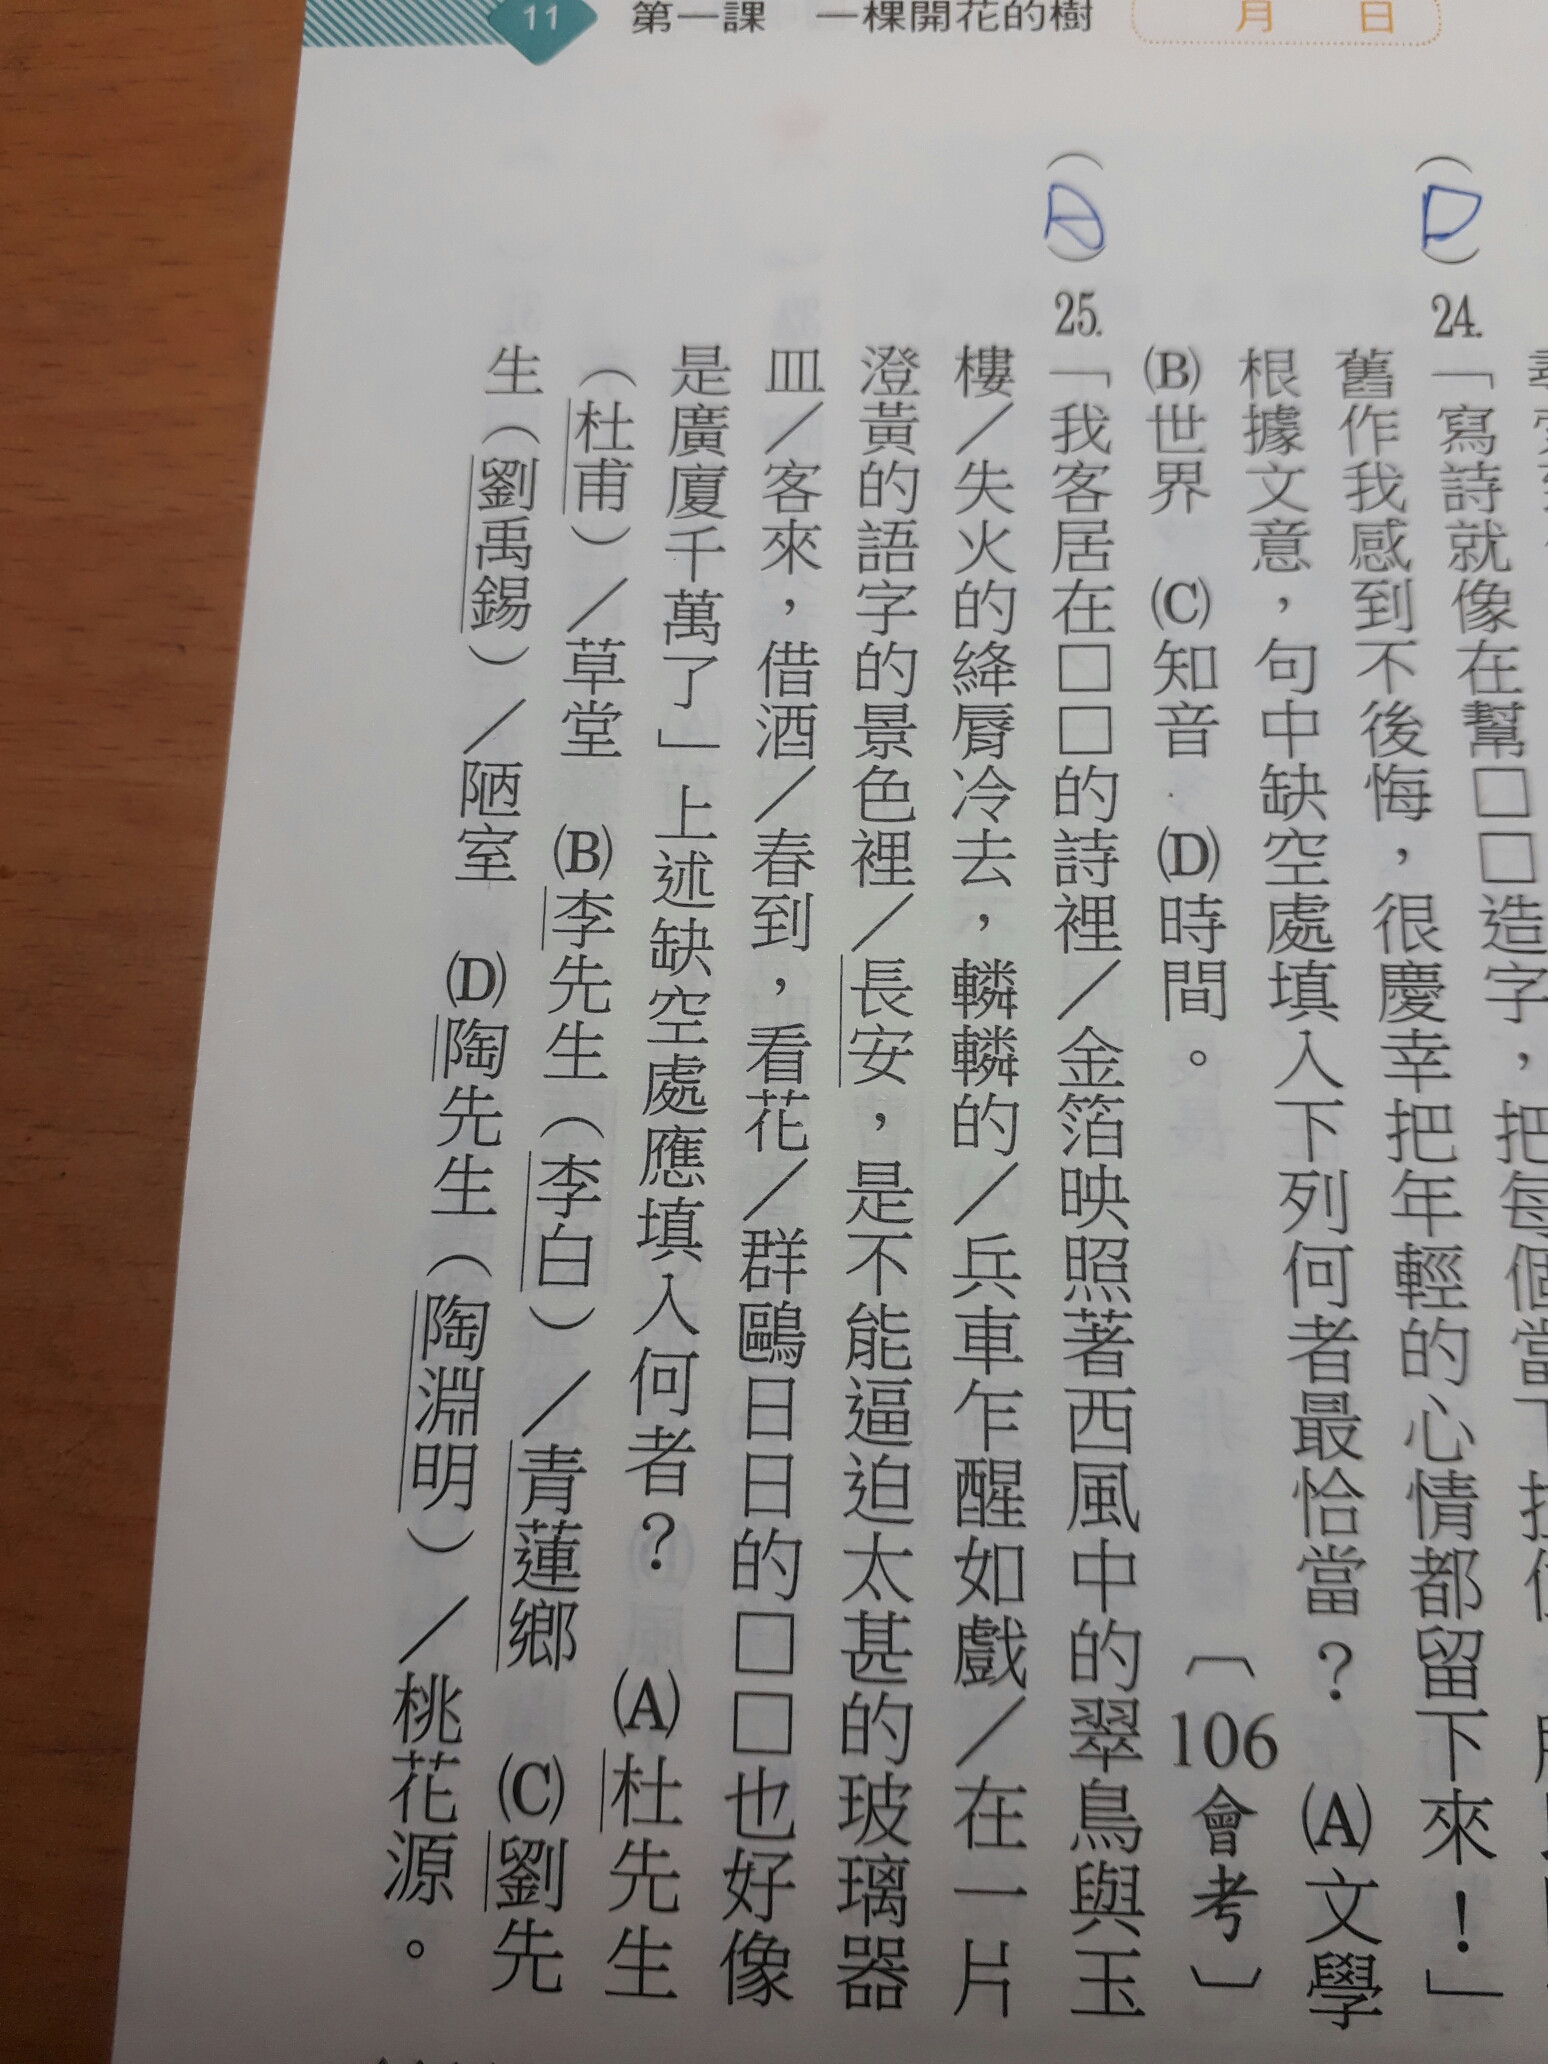 11 第一課 一棵開花的樹 月 日
(D) 24.「寫詩就像在幫□□造字，把每個當下
舊作我感到不後悔，很慶幸把年輕的心情都留下來！」
根據文意，句中缺空處填入下列何者最恰當？ (A)文學
(B)世界 (C)知音 (D)時間。〔106會考〕
(A) 25.「我客居在□□的詩裡／金箔映照著西風中的翠鳥與玉
樓／失火的絳脣冷去，轔轔的／兵車乍醒如戲／在一片
澄黃的語字的景色裡／長安，是不能逼迫太甚的玻璃器
皿／客來，借酒／春到，看花／群鷗日日的□□也好像
是廣廈千萬了」上述缺空處應填入何者？ (A)杜先生
（杜甫）／草堂 (B)李先生（李白）／青蓮鄉 (C)劉先
生（劉禹錫）／陋室 (D)陶先生（陶淵明）／桃花源。